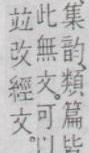 集韵、類篇皆
此無文。可以
竝改經文。